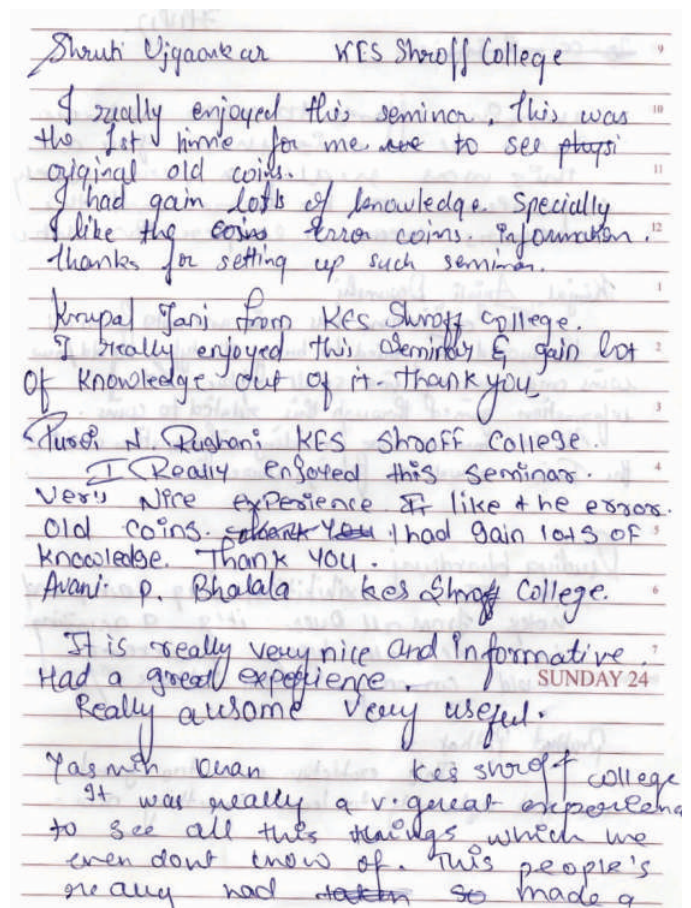 Shruti Vjgaonkar KES Shroff College 9
I really enjoyed this seminar. This was 10
the 1st time for me to see
original old coins. 11
I had gain lots of knowledge. Specially
I like the error coins information. 12
thanks for setting up such seminar.
1
Krupal Jani from KES Shroff College.
I really enjoyed this Seminar & gain lot 2
Of knowledge out of it. Thank you
3
N. Rughani KES Shroff College.
I Really enjoyed this seminar. 4
Very Nice experience It like the error
Old coins. I had gain lots of 5
knowledge. Thank You.
Avani. P. Bhalala Kes Shroff College. 6
It is really very nice and Informative. 7
Had a great experience. SUNDAY 24
Really ausome very useful.
Yasmin Khan Kes shroff college
It was really a v. great experience
to see all this things which we
even dont know of. This people's
really had so made a